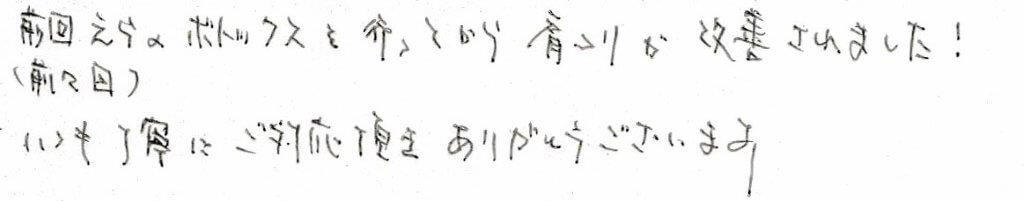 前回えらのボトックスを行ってから肩こりが改善されました!
(前々回)
いつも丁寧にご対応頂きありがとうございます